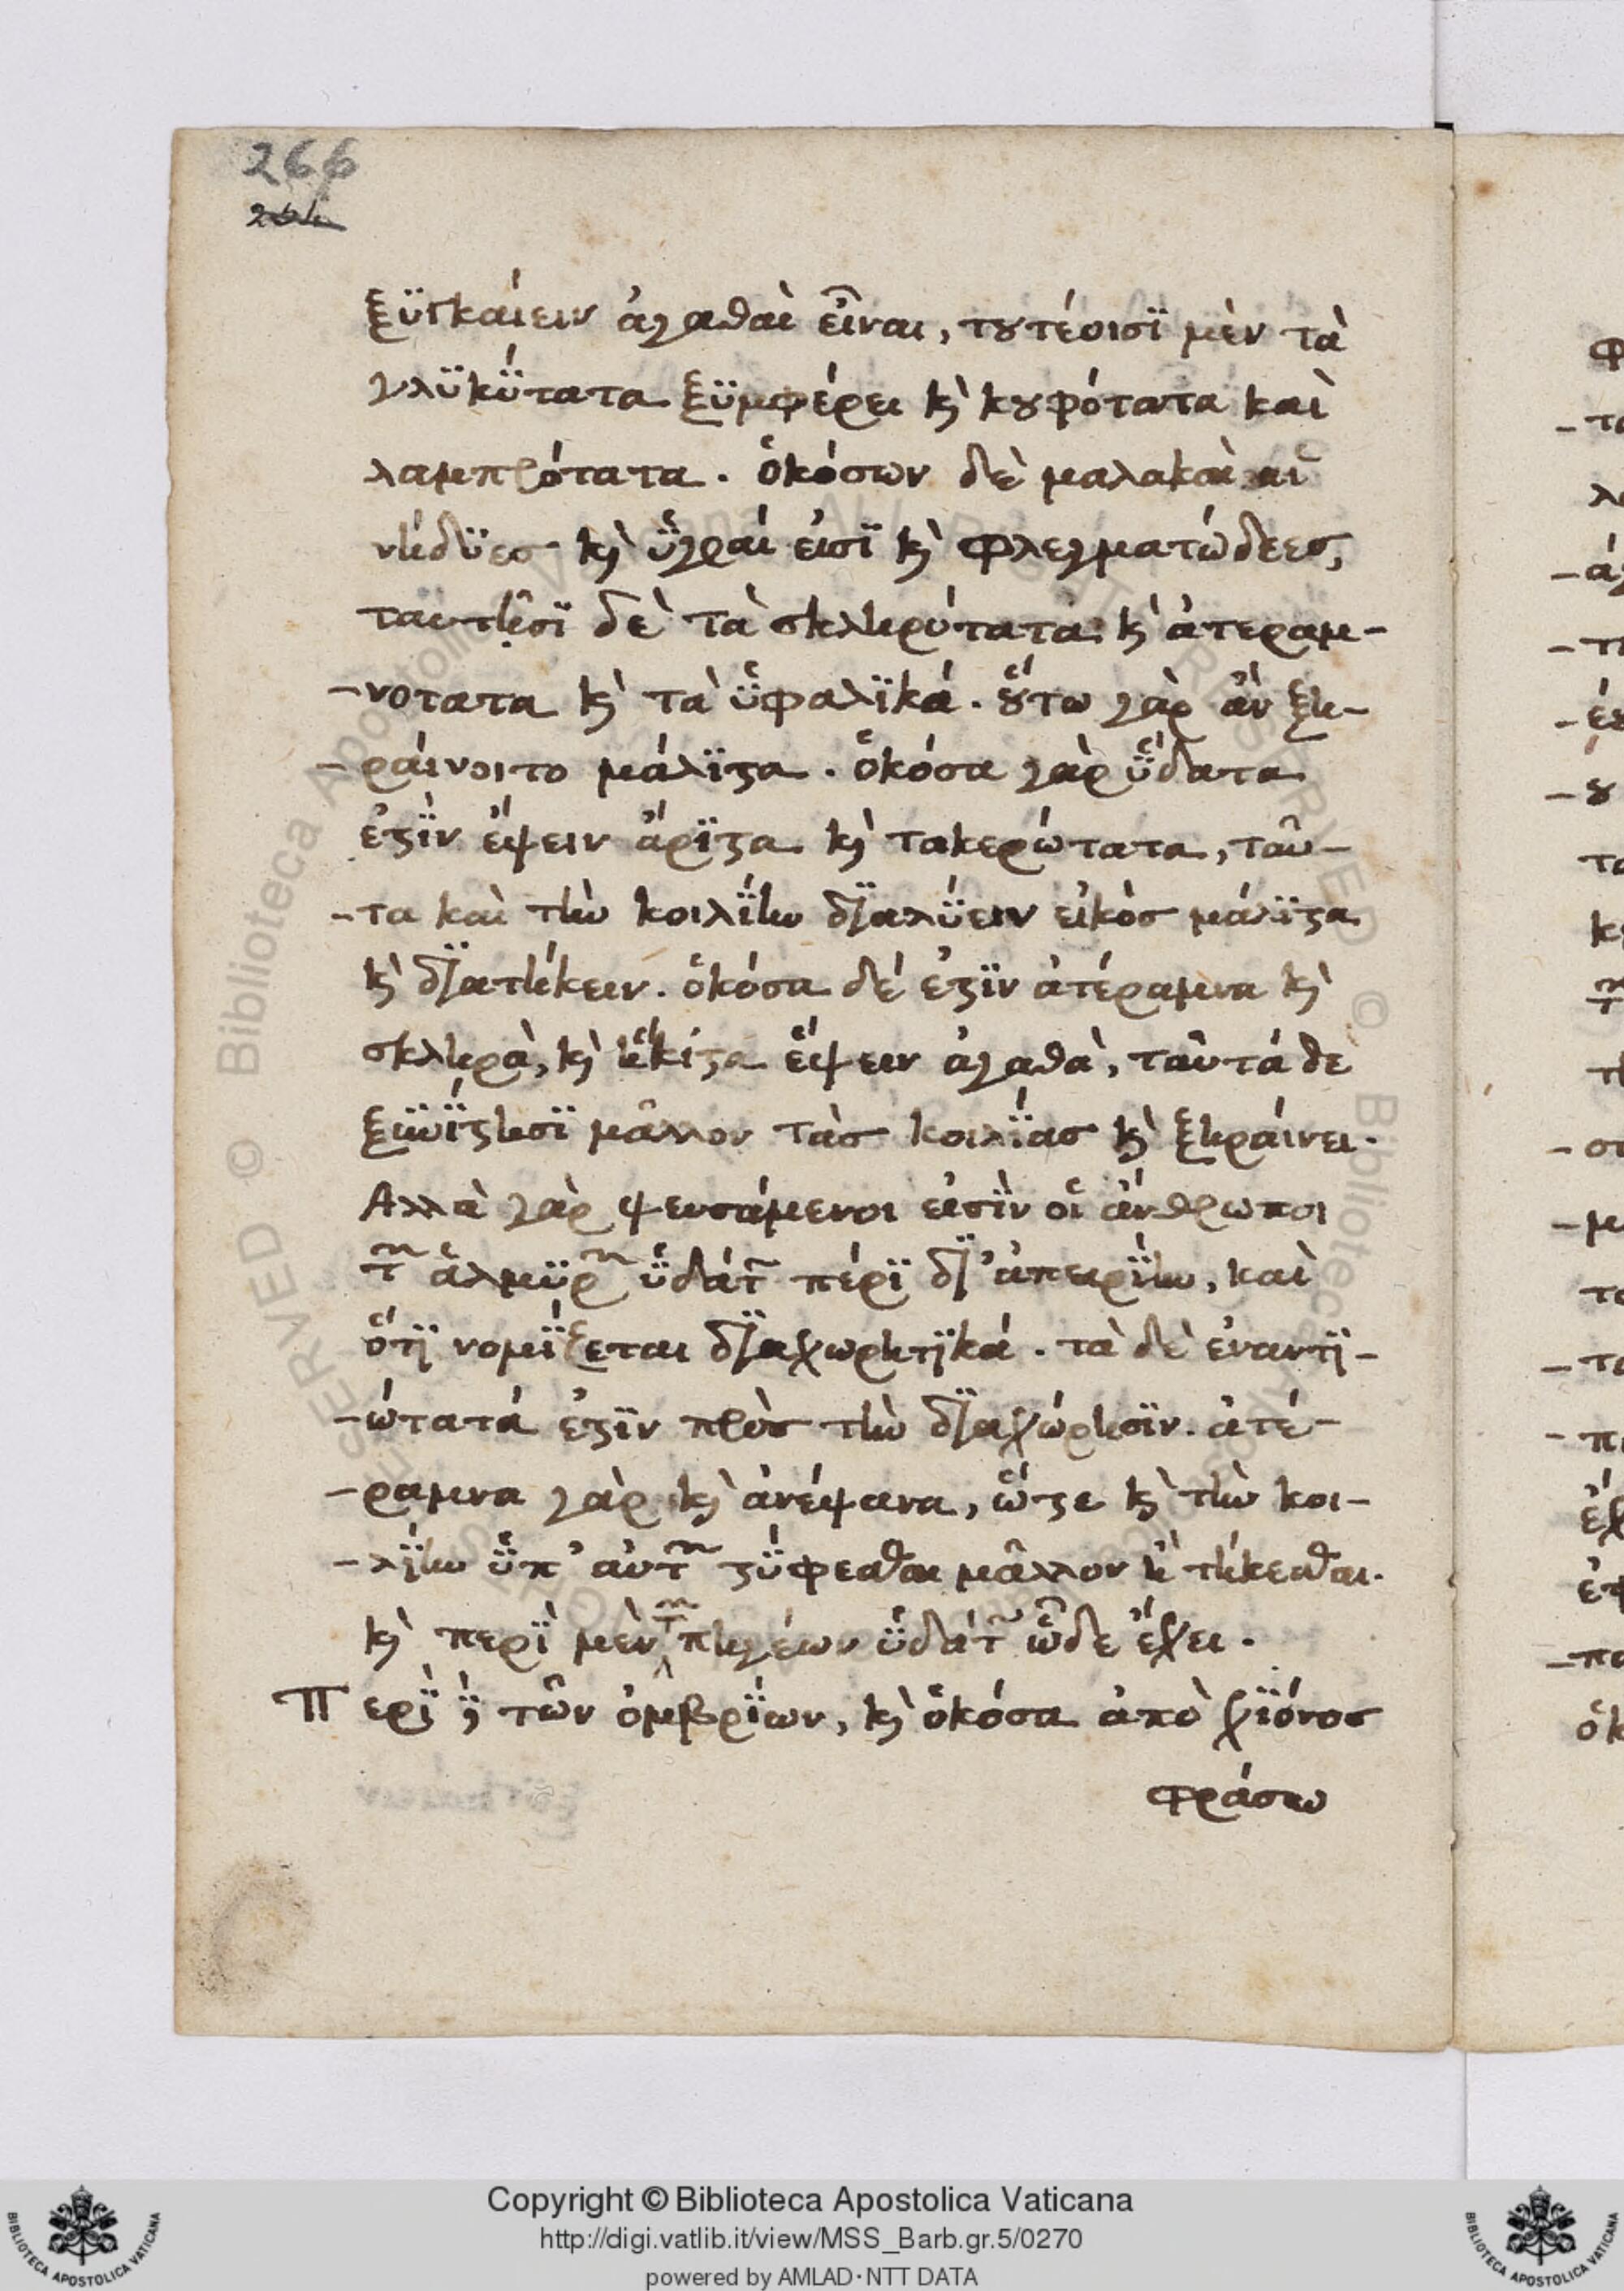 266
264
ξϋγκαίειν ἀγαθαὶ εἶναι, τȣτέοισϊ μὲν τὰ
γλϋκΰτατα ξϋμφέρει κ̀ κȣφότατα καὶ
λαμπρότατα. ὁκόσων δὲ μαλακαὶ αἱ
νήδϋες κ̀ ὑγραί εἰσϊ κ̀ φλεγματώδεες,
ταύτῃσϊ δὲ τὰ σκληρότατα κ̀ ἀτεραμ-
-νοτατα κ̀ τὰ ὑφαλϊκά. ȣ̔́τω γὰρ ἀν ξη-
-ραίνοιτο μάλϊϛα. ὁκόσα γὰρ ὕδατα
ἐϛῒν ἕψειν ἄρϊϛα κ̀ τακερώτατα, ταῦ-
-τα καὶ τὴν κοιλΐην δϊαλΰειν εἰκὸς μάλϊϛα
κ̀ δϊατήκειν. ὁκόσα δέ ἐϛϊν ἀτέραμνα κ̀
σκληρὰ, κ̀ ἥκιϛα ἕψειν ἀγαθὰ, ταῦτά δε
ξϋνΐϛησϊ μᾶλλον τὰς κοιλΐας κ̀ ξηραίνει.
Αλλὰ γὰρ ψευσάμενοι εἰσῒν οἱ ἄνθρωποι
τ͂ ἁλμϋρ͂ ὑδάτ͂ πέρϊ δϊ' ἀπειρΐην, καὶ
ὅτϊ νομΐζεται δϊαχωρητϊκά. τὰ δὲ ἐναντϊ-
-ώτατά ἐϛϊν πρὸς τὴν δϊαχώρησϊν. ἀτέ-
-ραμνα γὰρ κ̀ ἀνέψανα, ὥϛε κ̀ τὴν κοι-
-λΐην ὑπ' αὐτ͂ ϛΰφεσθαι μᾶλλον ἢ τήκεσθαι.
κ̀ περῒ μὲν τ͂ πηγέων ὑδάτ͂ ὧδε ἔχει.
Περῒ δὲ τῶν ὀμβρΐων, κ̀ ὁκόσα ἀπὸ χϊόνος
φράσω
Copyright © Biblioteca Apostolica Vaticana
http://digi.vatlib.it/view/MSS_Barb.gr.5/0270
powered by AMLAD·NTT DATA